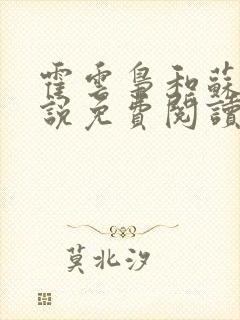 霍雲梟和蘇
說免費閱讀
莫北汐